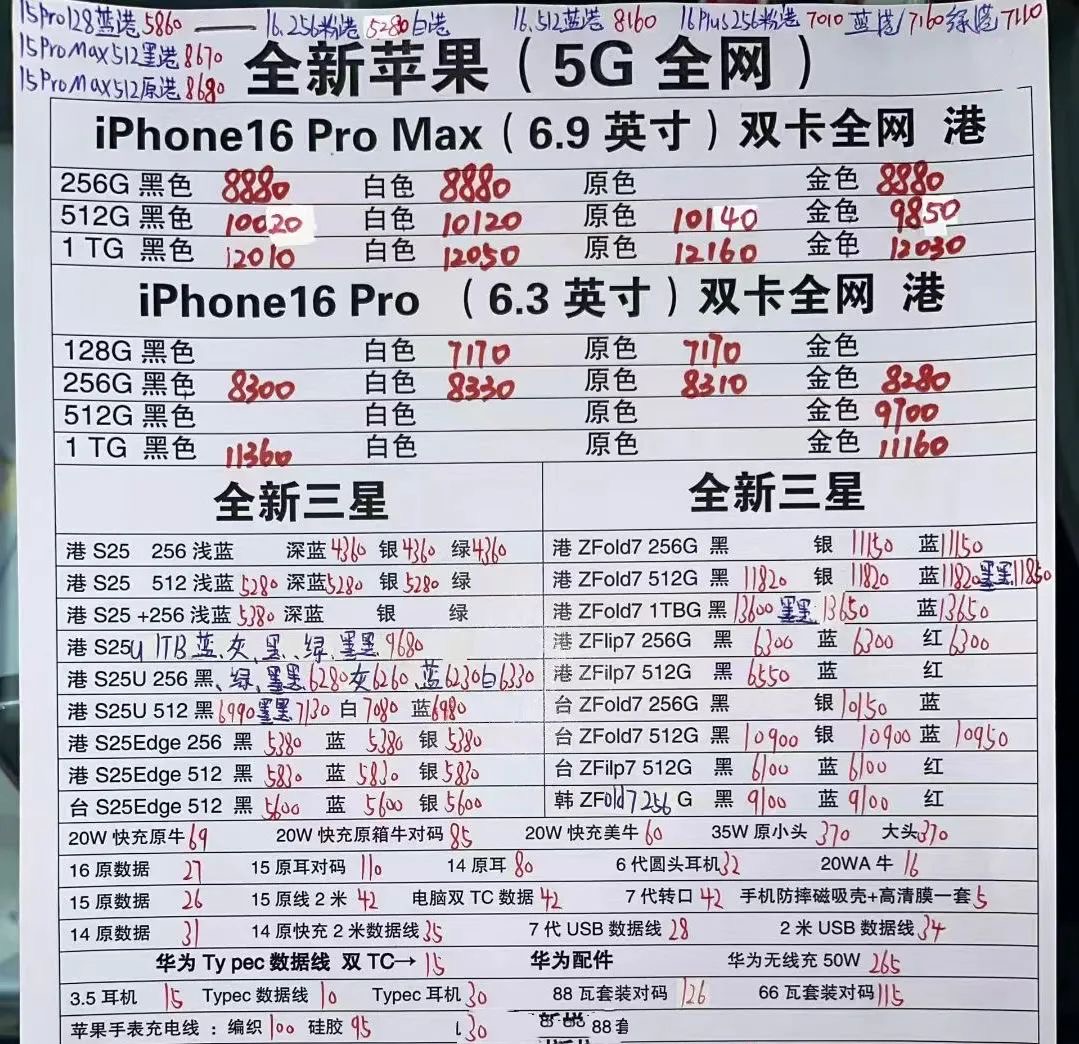 15Pro128蓝港5860 —— 16.256粉港5280白港 16.512蓝港8160 16Plus256粉港7010 蓝港/7160绿港7110
15ProMax512黑港8670
15ProMax512原港8680
全新苹果（5G 全网）
iPhone16 Pro Max（6.9 英寸）双卡全网 港
256G 黑色 8880 白色 8880 原色 金色 8880
512G 黑色 10020 白色 10120 原色 10140 金色 9850
1 TG 黑色 12010 白色 12050 原色 12160 金色 12030
iPhone16 Pro （6.3 英寸）双卡全网 港
128G 黑色 白色 7170 原色 7170 金色
256G 黑色 8300 白色 8330 原色 8310 金色 8280
512G 黑色 白色 原色 金色 9700
1 TG 黑色 11360 白色 原色 金色 11160
全新三星
港 S25 256 浅蓝 深蓝4360 银4360 绿4360
港 S25 512 浅蓝5280 深蓝5280 银5280 绿
港 S25 +256 浅蓝5380 深蓝 银 绿
港 S25U 1TB 蓝、灰、黑、绿、9680
港 S25U 256 黑、绿、6280灰6260、蓝6230白6330
港 S25U 512 黑6990 7130 白7080 蓝6980
港 S25Edge 256 黑 5380 蓝 5380 银5380
港 S25Edge 512 黑 5830 蓝 5830 银5830
台 S25Edge 512 黑 5600 蓝 5600 银5600
全新三星
港 ZFold7 256G 黑 银 11150 蓝11150
港 ZFold7 512G 黑 11820 银 11820 蓝11820 11850
港 ZFold7 1TBG 黑13600 13650 蓝13650
港 ZFlip7 256G 黑 6300 蓝 6300 红6300
港 ZFilp7 512G 黑 6550 蓝 红
台 ZFold7 256G 黑 银10150 蓝
台 ZFold7 512G 黑 10900 银 10900 蓝 10950
台 ZFilp7 512G 黑 6100 蓝 6100 红
韩 ZFold7 256 G 黑 9100 蓝 9100 红
20W 快充原牛69 20W 快充原箱牛对码85 20W 快充美牛60 35W 原小头370 大头370
16 原数据 27 15 原耳对码 110 14 原耳 80 6 代圆头耳机32 20WA 牛 16
15 原数据 26 15 原线 2 米 42 电脑双 TC 数据 42 7 代转口 42 手机防摔磁吸壳+高清膜一套5
14 原数据 31 14 原快充 2 米数据线35 7 代 USB 数据线 28 2 米 USB 数据线34
华为 Ty pec 数据线 双 TC→ 15 华为配件 华为无线充 50W 265
3.5 耳机 15 Typec 数据线 10 Typec 耳机30 88 瓦套装对码 126 66 瓦套装对码115
苹果手表充电线 ：编织100 硅胶 95 30 88 套